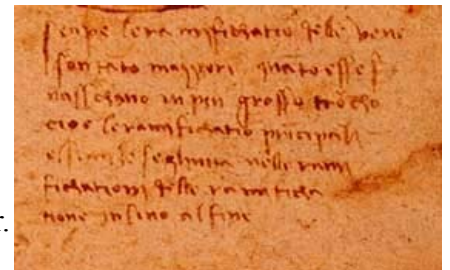 senpre le ramifichatio delle vene
son tāto maggori quāto esse s
nasschano in piu grosso trōcho
cioe le ramifichatiō principali
e seghuita nelle rami
fichationi delle ramificha
tione insino al fine
r.